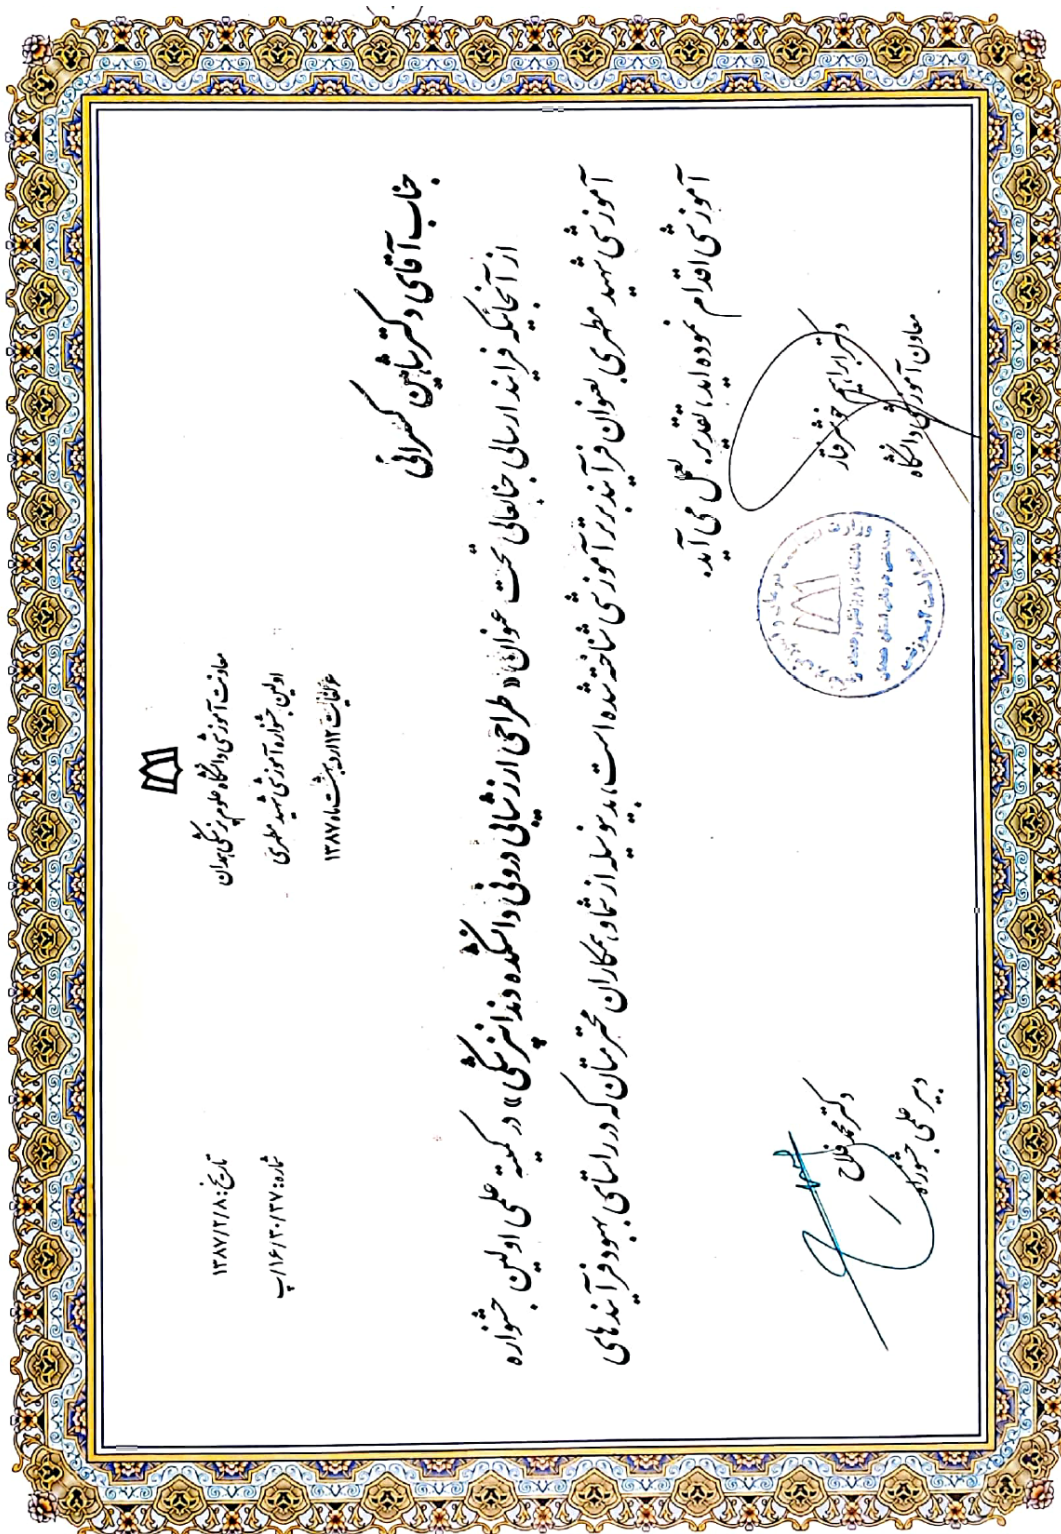 معاونت آموزشی دانشگاه علوم پزشکی همدان
اولین جشنواره آموزشی شهید مطهری
۱۲ اردیبهشت ماه ۱۳۸۷
تاریخ: ۱۳۸۷/۲/۸
شماره: ۱۶/۳۰/۳۷/پ
جناب آقای دکتر شاهین کسرائی
از آنجائیکه فرایند ارسالی جنابعالی تحت عنوان « طراحی ارزشیابی درونی دانشکده دندانپزشکی » در کمیته علمی اولین جشنواره
آموزشی شهید مطهری بعنوان فرآیند برتر آموزشی شناخته شده است، بدینوسیله از شما و همکاران محترمتان که در راستای بهبود فرآیندهای
آموزشی اقدام نموده اید، تقدیر بعمل می آید.
دکتر ابراهیم
معاون آموزشی دانشگاه
دکتر محمد فلاح
دبیر علمی جشنواره